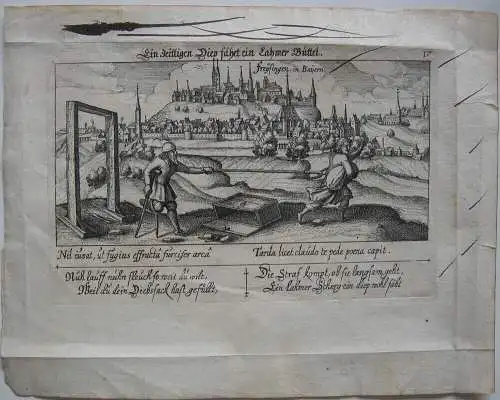 Ein Zeittigen Diep fahet ein Lahmer Büttel.
17
Freysingen in Bayern
Nil iuvat, ut fugias effracta furcifer arca
Tarda licet claudo te pede poena capit.
Nuhn lauff nuhn so weit du wilt.
Weil du dein Diebssack hast gefüllt,
Die Straf kompt, ob sie langsam geht.
Ein lahmer Scherg ein diep wohl